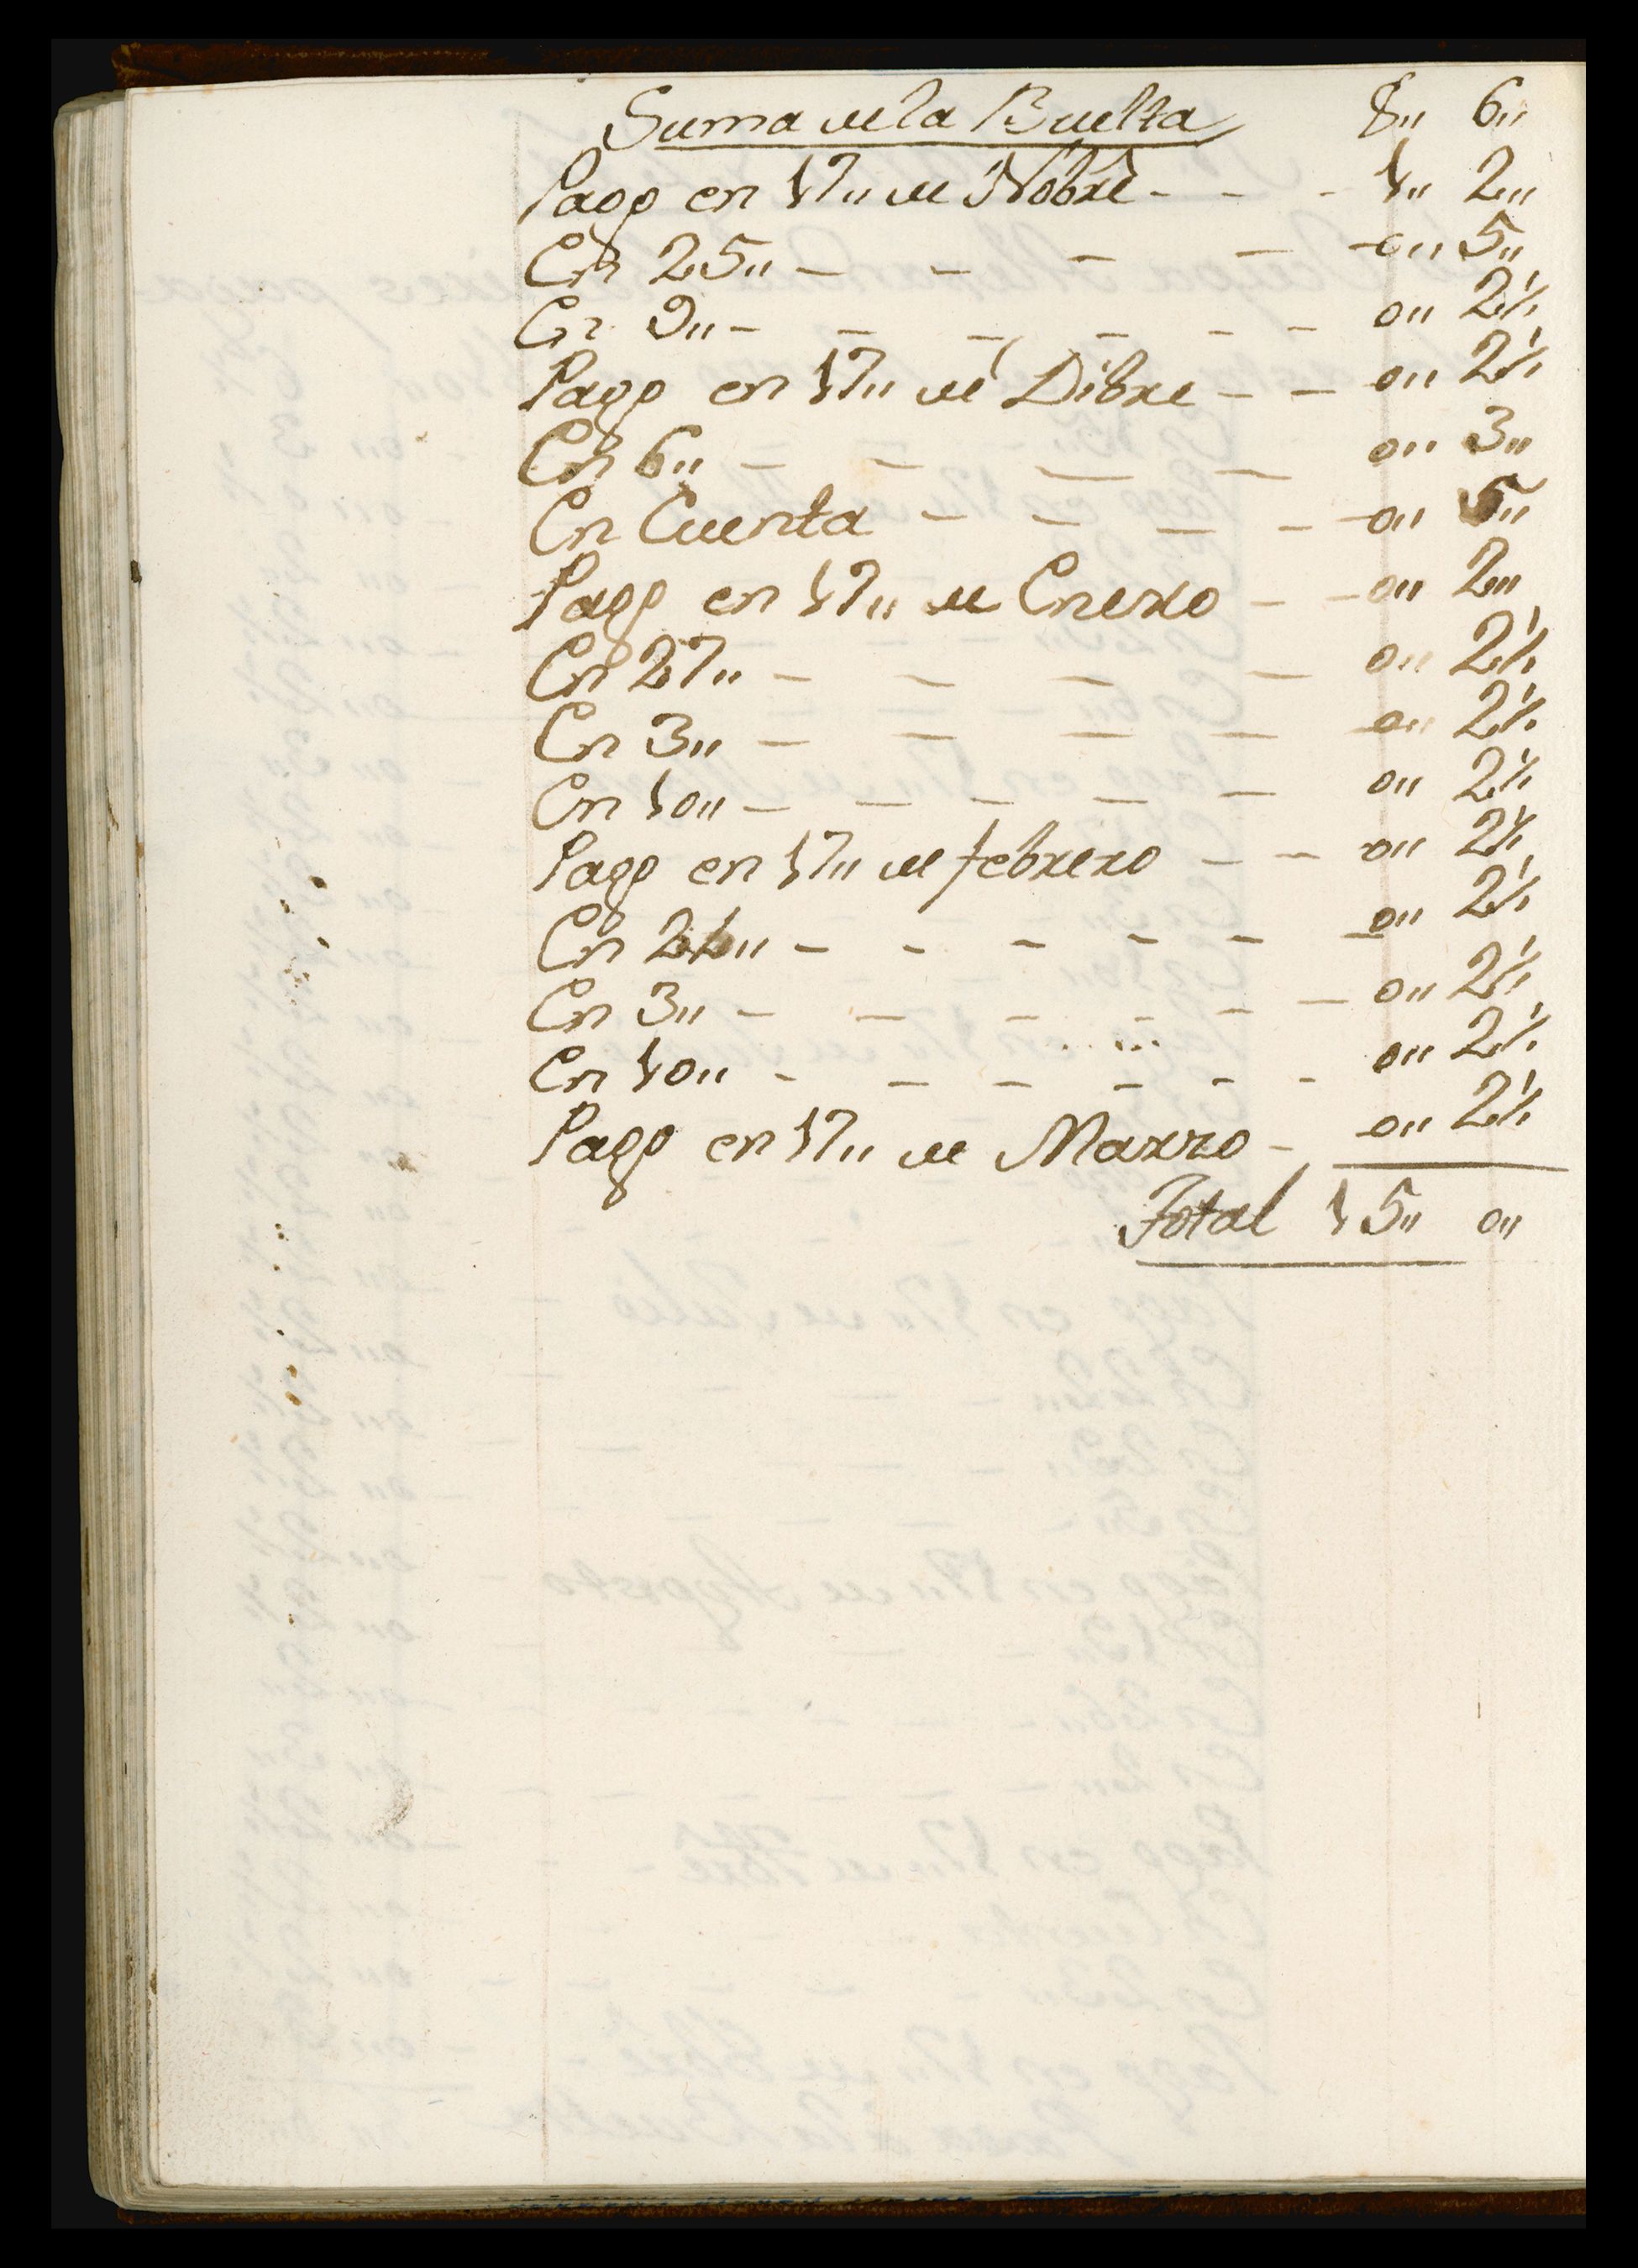 Suma de la Buelta 8,, 6,,
Pago en 17,, de Nobre - - - 1,, 2,,
En 25,, - - - - 0,, 5,,
En 9,, - - - - - - 0,, 2½
Pago en 17,, de Dibre - - 0,, 2½
En 6,, - - - - 0,, 3,,
En Cuenta - - - - 0,, 5,,
Pago en 17,, de Enero - - 0,, 2,,
En 27,, - - - - 0,, 2½
En 3,, - - - - - 0,, 2½
En 10,, - - - - - 0,, 2½
Pago en 17,, de febrero - - 0,, 2½
En 24,, - - - - - - 0,, 2½
En 3,, - - - - - - 0,, 2½
En 10,, - - - - - - 0,, 2½
Pago en 17,, de Marzo - 0,, 2½
Total 15,, 0,,